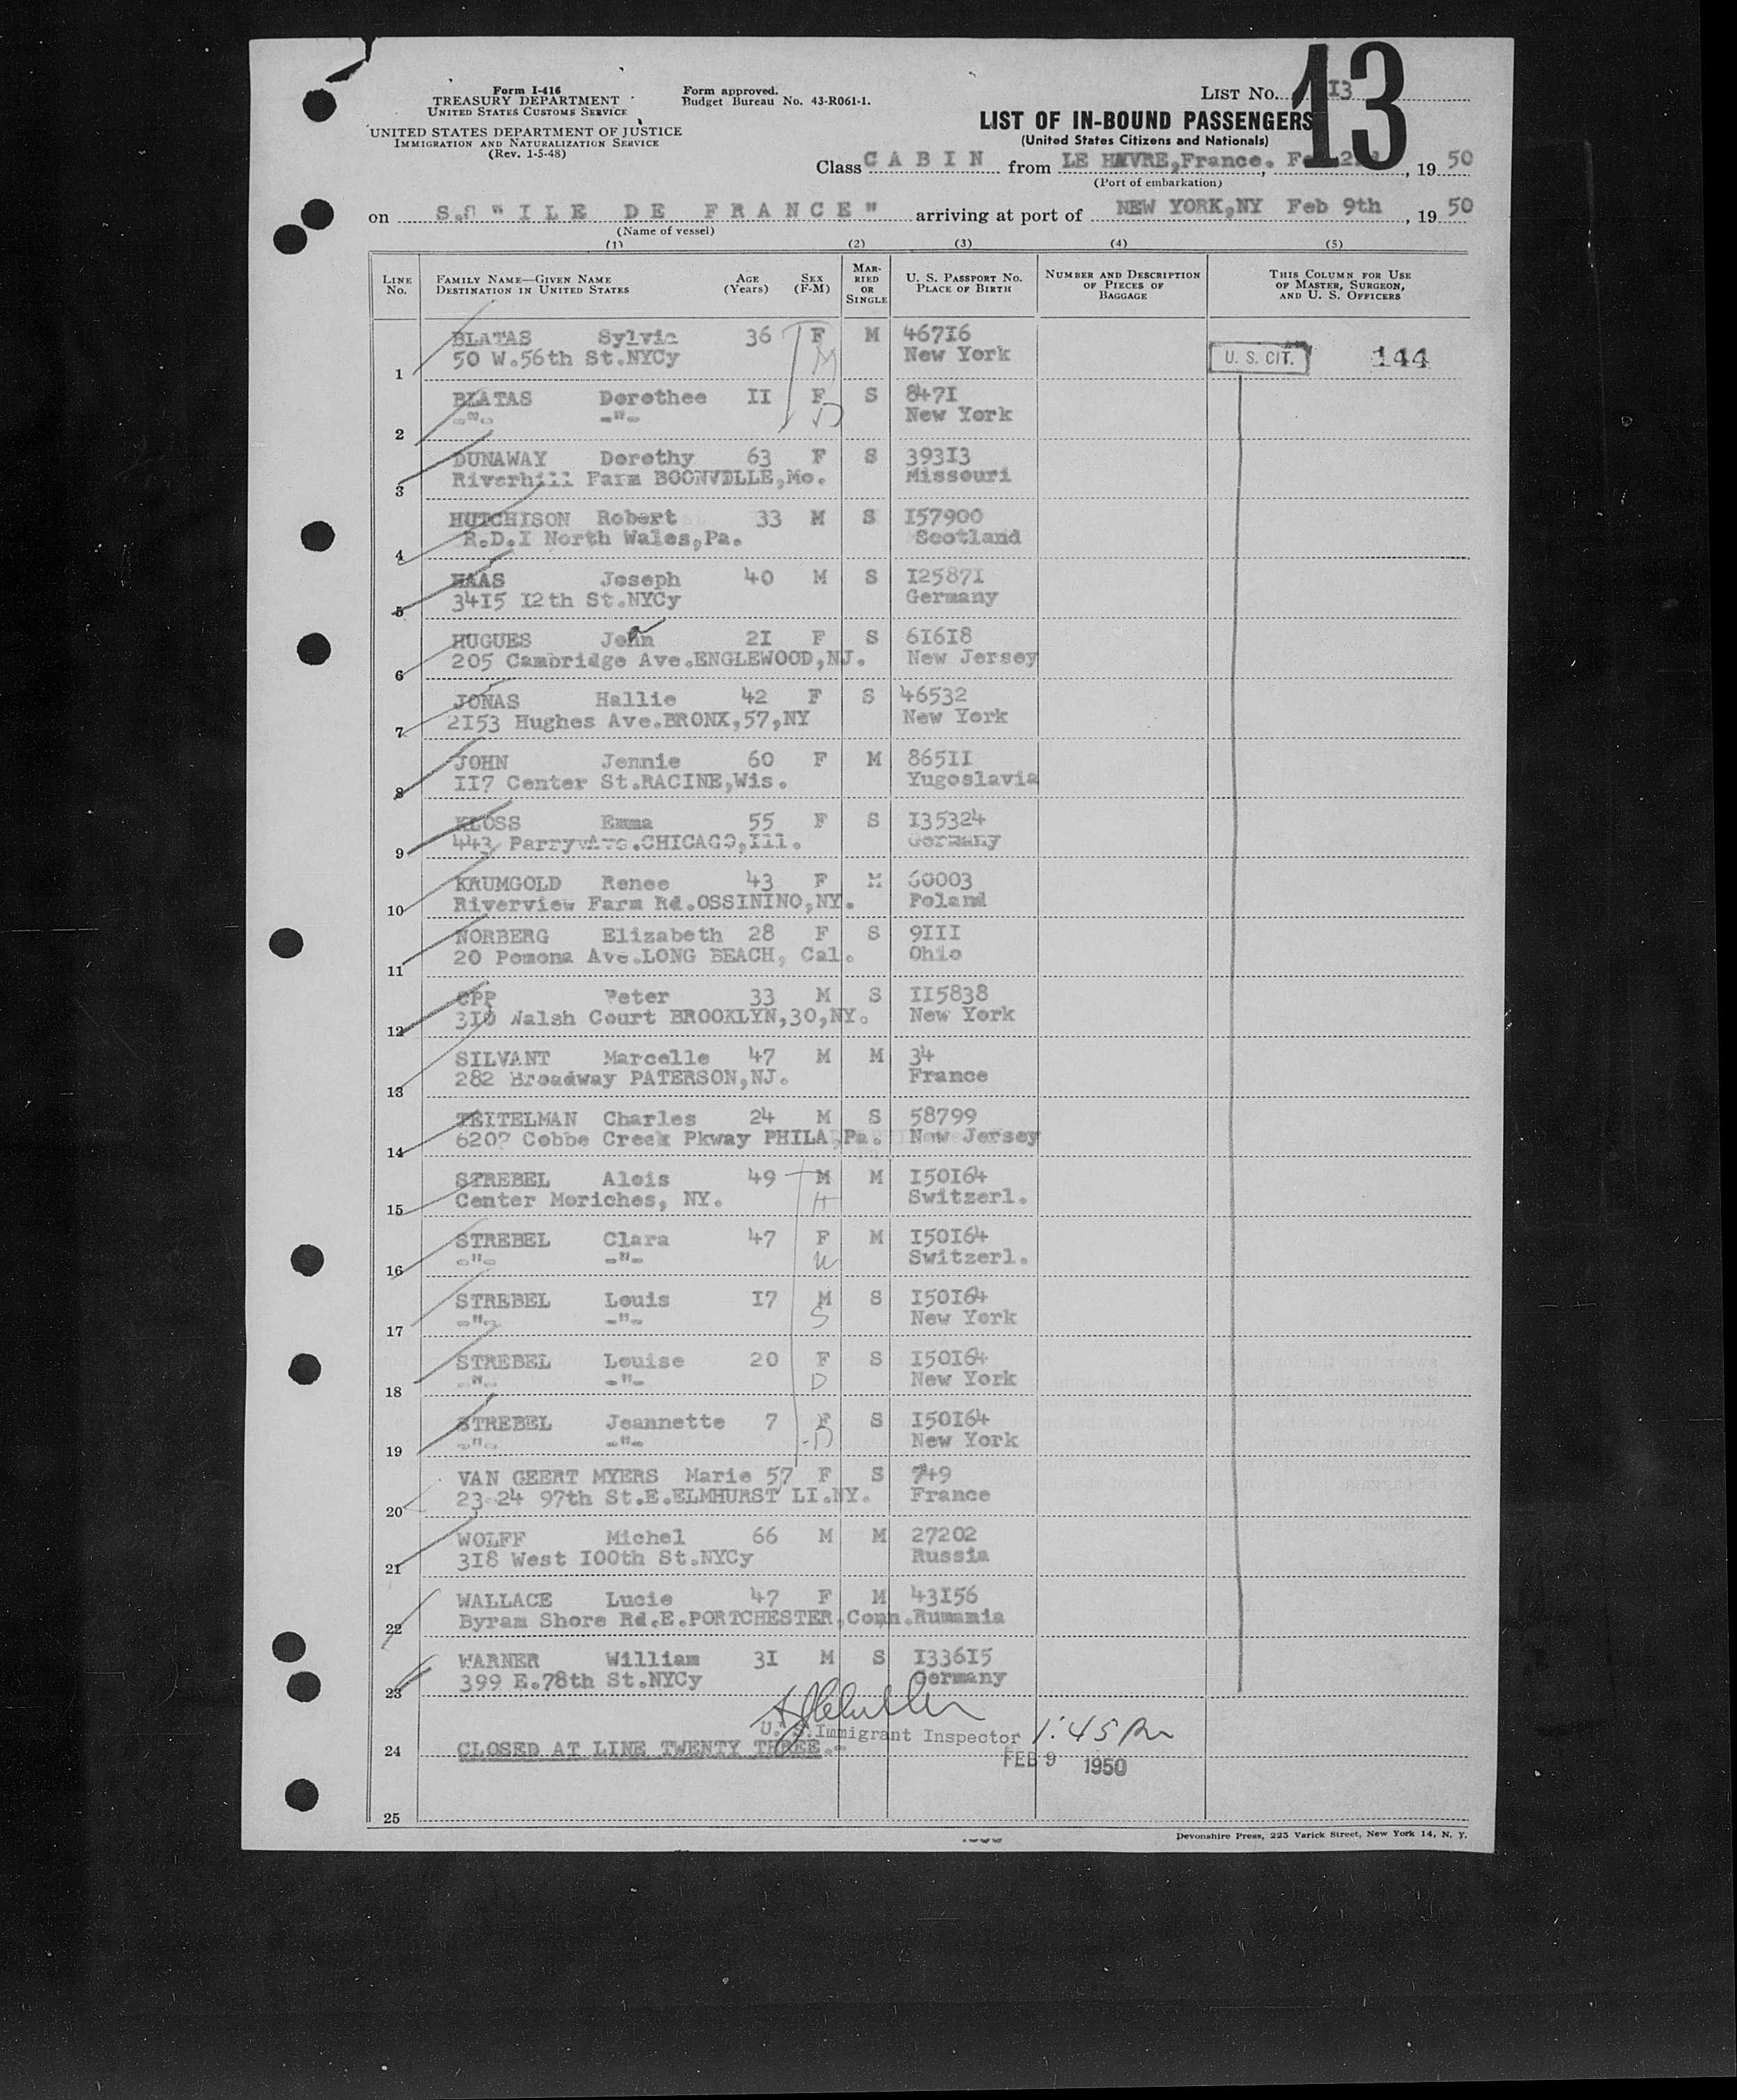 13
Form I-416
TREASURY DEPARTMENT
UNITED STATES CUSTOMS SERVICE
UNITED STATES DEPARTMENT OF JUSTICE
IMMIGRATION AND NATURALIZATION SERVICE
(Rev. 1-5-48)
Form approved.
Budget Bureau No. 43-R061-1.
LIST NO. I3
LIST OF IN-BOUND PASSENGERS
(United States Citizens and Nationals)
Class C A B I N from LE HAVRE,France. , 19 50
(Port of embarkation)
on S.S "I L E D E F R A N C E" arriving at port of NEW YORK,NY Feb 9th , 19 50
(Name of vessel)
(1) (2) (3) (4) (5)
LINE No. FAMILY NAME—GIVEN NAME DESTINATION IN UNITED STATES AGE (Years) SEX (F-M) MARRIED OR SINGLE U. S. PASSPORT NO. PLACE OF BIRTH NUMBER AND DESCRIPTION OF PIECES OF BAGGAGE THIS COLUMN FOR USE OF MASTER, SURGEON, AND U. S. OFFICERS
BLATAS Sylvia 36 F M 467I6
1 50 W.56th St.NYCy M New York U. S. CIT. 144
BLATAS Dorothee II F S 847I
2 -"- -"- D New York
DUNAWAY Dorothy 63 F S 393I3
3 Riverhill Farm BOONVILLE,Mo. Missouri
HUTCHISON Robert 33 M S I57900
4 R.D.I North Wales,Pa. Scotland
HAAS Joseph 40 M S I2587I
5 34I5 I2th St.NYCy Germany
HUGUES Joan 2I F S 6I6I8
6 205 Cambridge Ave.ENGLEWOOD,NJ. New Jersey
JONAS Hallie 42 F S 46532
7 2I53 Hughes Ave.BRONX,57,NY New York
JOHN Jennie 60 F M 865II
8 II7 Center St.RACINE,Wis. Yugoslavia
KLOSS Emma 55 F S I35324
9 443 Parry Ave.CHICAGO,Ill. Germany
KRUMGOLD Renee 43 F M 60003
10 Riverview Farm Rd.OSSINING,NY. Poland
NORBERG Elizabeth 28 F S 9III
11 20 Pomona Ave.LONG BEACH, Cal. Ohio
OPP Peter 33 M S II5838
12 3I0 Walsh Court BROOKLYN,30,NY. New York
SILVANT Marcelle 47 M M 34
13 282 Broadway PATERSON,NJ. France
TEITELMAN Charles 24 M S 58799
14 Cobbs Creek Pkway PHILA,Pa. New Jersey
STREBEL Alois 49 M M I50I64
15 Center Moriches, NY. H Switzerl.
STREBEL Clara 47 F M I50I64
16 -"- -"- W Switzerl.
STREBEL Louis I7 M S I50I64
17 -"- -"- S New York
STREBEL Louise 20 F S I50I64
18 -"- -"- D New York
STREBEL Jeannette 7 F S I50I64
19 -"- -"- D New York
VAN GEERT MYERS Marie 57 F S 749
20 23-24 97th St.E.ELMHURST LI.NY. France
WOLFF Michel 66 M M 27202
21 3I8 West I00th St.NYCy Russia
WALLACE Lucie 47 F M 43I56
22 Byram Shore Rd.E.PORTCHESTER,Conn. Rumania
WARNER William 3I M S I336I5
23 399 E.78th St.NYCy Germany
U. S. Immigrant Inspector 1:45 Pm
24 CLOSED AT LINE TWENTY THREE.-
FEB 9 1950
25
Devonshire Press, 225 Varick Street, New York 14, N. Y.